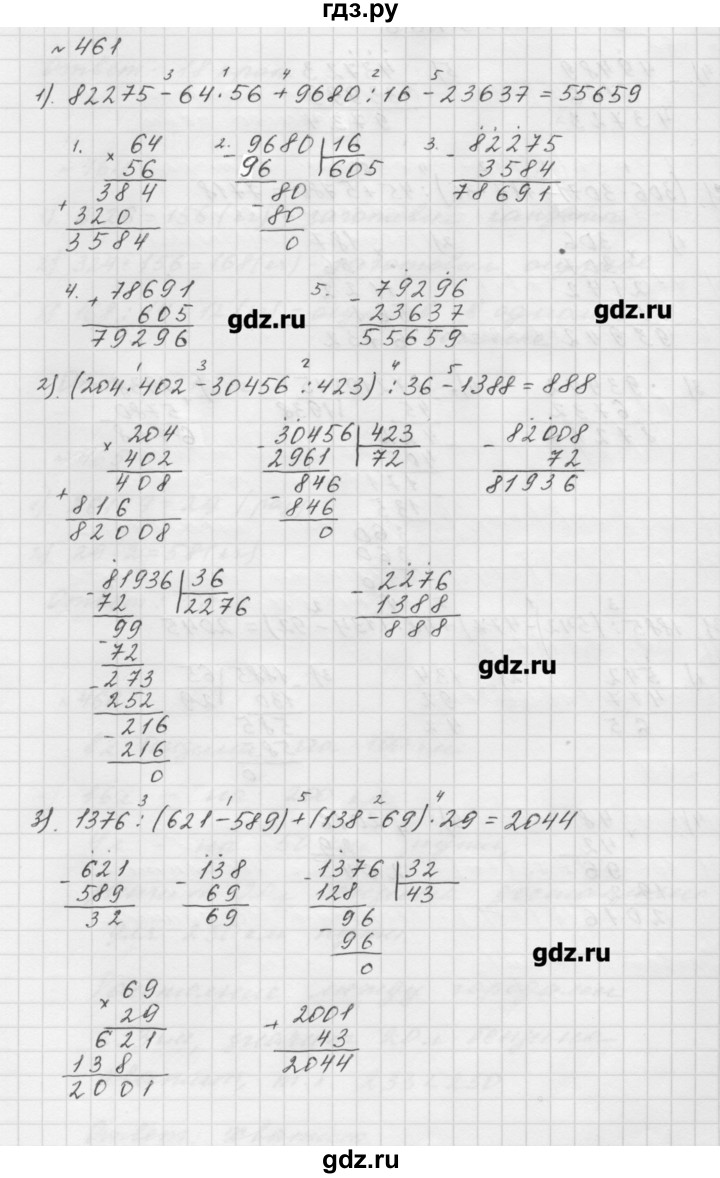 гдз.ру
№ 461
1). 82275 - 64 · 56 + 9680 : 16 - 23637 = 55659
3 1 4 2 5
1. 64
× 56
384
+ 320
3584
2. - 9680 16
96 605
- 80
80
0
3. - 82275
3584
78691
4. + 78691
605
79296
5. - 79296
23637
55659
gdz.ru
gdz.ru
2). (204 · 402 - 30456 : 423) : 36 - 1388 = 888
1 3 2 4 5
× 204
402
408
+ 816
82008
- 30456 423
2961 72
- 846
846
0
- 82008
72
81936
- 81936 36
72 2276
- 99
72
- 273
252
- 216
216
0
- 2276
1388
888
gdz.ru
3). 1376 : (621 - 589) + (138 - 69) · 29 = 2044
3 1 5 2 4
- 621
589
32
- 138
69
69
- 1376 32
128 43
- 96
96
0
gdz.ru
× 69
29
621
138
2001
+ 2001
43
2044
gdz.ru